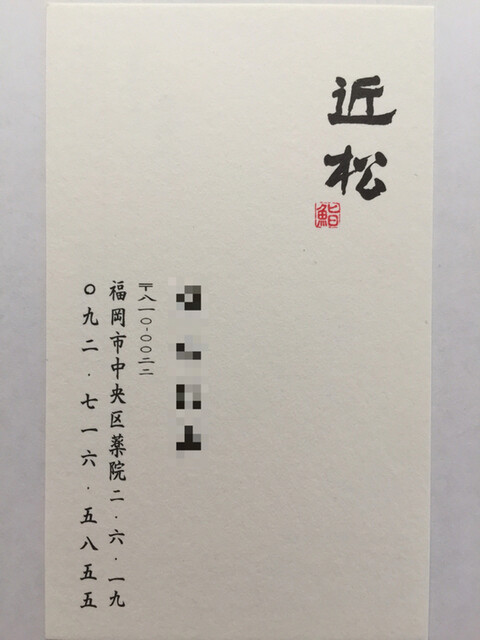 近松
鮨
〒八一〇-〇〇二二
福岡市中央区薬院二・六・一九
〇九二・七一六・五八五五